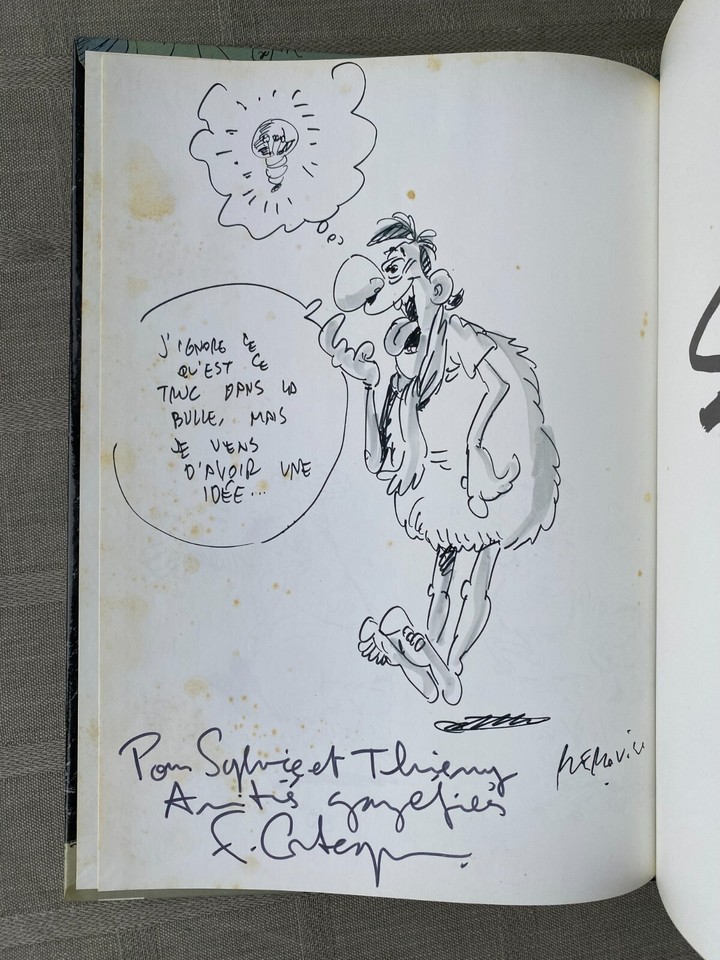 J'IGNORE CE
QU'EST CE
TRUC DANS LA
BULLE, MAIS
JE VIENS
D'AVOIR UNE
IDÉE...
Pour Sylvie et Thierry
Amitiés
F.